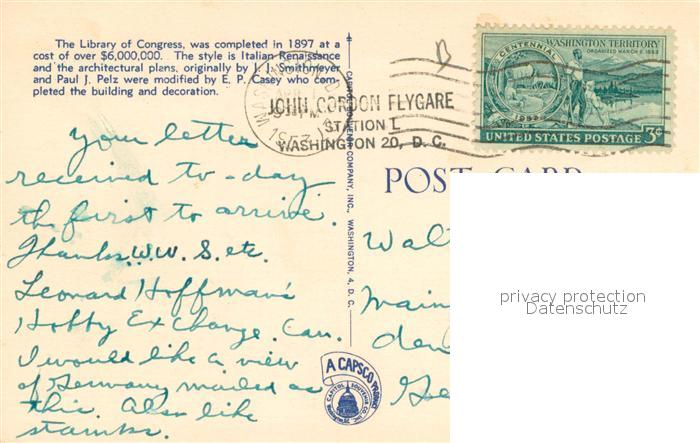 The Library of Congress, was completed in 1897 at a
cost of over $6,000,000. The style is Italian Renaissance
and the architectural plans, originally by J. L. Smithmeyer
and Paul J. Pelz were modified by E. P. Casey who com-
pleted the building and decoration.
your letter
received to-day
the first to arrive.
Thanks. W.W. S. etc.
Leonard Hoffman's
Hobby Exchange. Can.
I would like a view
of Germany mailed as
this. Also like
stamps.
CAPITOL SOUVENIR COMPANY, INC., WASHINGTON, 4, D. C.
A CAPSCO PRODUCT
CAPITOL SOUVENIR CO., INC.
JOHN GORDON FLYGARE
STATION L
WASHINGTON 20, D. C.
CENTENNIAL
WASHINGTON TERRITORY
ORGANIZED MARCH 2, 1853
1953
UNITED STATES POSTAGE 3¢
POST CARD
Wal
Main
den
Ge
privacy protection
Datenschutz